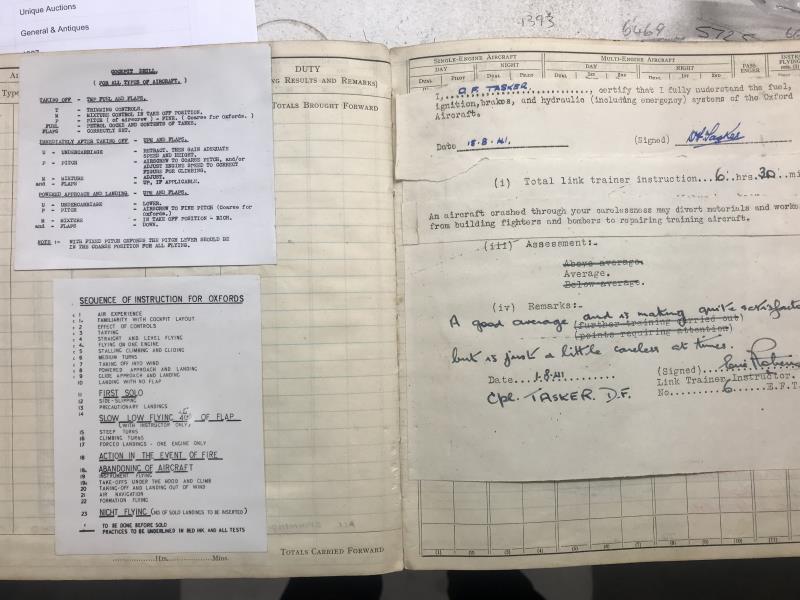 Unique Auctions
General & Antiques
1393
6469
5725
DUTY
TOTALS BROUGHT FORWARD
COCKPIT DRILL.
( FOR ALL TYPES OF AIRCRAFT. )
TAKING OFF - TMP FUEL AND FLAPS.
T - TRIMMING CONTROLS.
M - MIXTURE CONTROL IN TAKE OFF POSITION.
P - PITCH ( of airscrew) - FINE. ( Coarse for oxfords. )
FUEL - PETROL COCKS AND CONTENTS OF TANKS.
FLAPS - CORRECTLY SET.
IMMEDIATELY AFTER TAKING OFF - UPM AND FLAPS.
U - UNDERCARRIAGE - RETRACT. THEN GAIN ADEQUATE
SPEED AND HEIGHT.
P - PITCH - AIRSCREW TO COARSE PITCH, and/or
ADJUST ENGINE SPEED TO CORRECT
FIGURE FOR CLIMBING.
M - MIXTURE - ADJUST.
and - FLAPS - UP, IF APPLICABLE.
POWERED APPROACH AND LANDING - UPM AND FLAPS.
U - UNDERCARRIAGE - LOWER.
P - PITCH - AIRSCREW TO FINE PITCH (Coarse for
oxfords.)
M - MIXTURE - IN TAKE OFF POSITION - RICH.
and - FLAPS - DOWN.
NOTE :- WITH FIXED PITCH OXFORDS THE PITCH LEVER SHOULD BE
IN THE COARSE POSITION FOR ALL FLYING.
SEQUENCE OF INSTRUCTION FOR OXFORDS
1 AIR EXPERIENCE
1A FAMILIARITY WITH COCKPIT LAYOUT
2 EFFECT OF CONTROLS
3 TAXYING
4 STRAIGHT AND LEVEL FLYING
4A FLYING ON ONE ENGINE
5 STALLING CLIMBING AND GLIDING
6 MEDIUM TURNS
7 TAKING OFF INTO WIND
8 POWERED APPROACH AND LANDING
9 GLIDE APPROACH AND LANDING
10 LANDING WITH NO FLAP
11 FIRST SOLO
12 SIDE-SLIPPING
13 PRECAUTIONARY LANDINGS
14 SLOW LOW FLYING OF FLAP
(WITH INSTRUCTOR ONLY)
15 STEEP TURNS
16 CLIMBING TURNS
17 FORCED LANDINGS - ONE ENGINE ONLY
18 ACTION IN THE EVENT OF FIRE
18A ABANDONING OF AIRCRAFT
19 INSTRUMENT FLYING
19A TAKE-OFFS UNDER THE HOOD AND CLIMB
20 TAKING-OFF AND LANDING OUT OF WIND
21 AIR NAVIGATION
22 FORMATION FLYING
23 NIGHT FLYING (NO OF SOLO LANDINGS TO BE INSERTED)
TO BE DONE BEFORE SOLO
PRACTICES TO BE UNDERLINED IN RED INK AND ALL TESTS
Hrs. Mins.
TOTALS CARRIED FORWARD
SINGLE-ENGINE AIRCRAFT MULTI-ENGINE AIRCRAFT
DAY NIGHT DAY NIGHT
DUAL PILOT DUAL PILOT DUAL
PASS-
ENGER
I, D.F. TASKER, certify that I fully understand the fuel,
ignition, brakes, and hydraulic (including emergency) systems of the Oxford
Aircraft.
Date 18.8.41. (Signed) D.F. Tasker
(i) Total link trainer instruction...6..hrs.30..
An aircraft crashed through your carelessness may divert materials and
from building fighters and bombers to repairing training aircraft.
(iii) Assessment:-
Above average.
Average.
Below average.
(iv) Remarks:-
A good average and is making quite
(further training carried out)
(points requiring attention)
but is just a little careless at times.
Date....1.8.41 (Signed)
Link Trainer Instructor.
Cpl. TASKER. D.F. No.....6....E.F.T
(1) (2) (3) (4) (5) (6) (7) (8) (9) (10) (11)